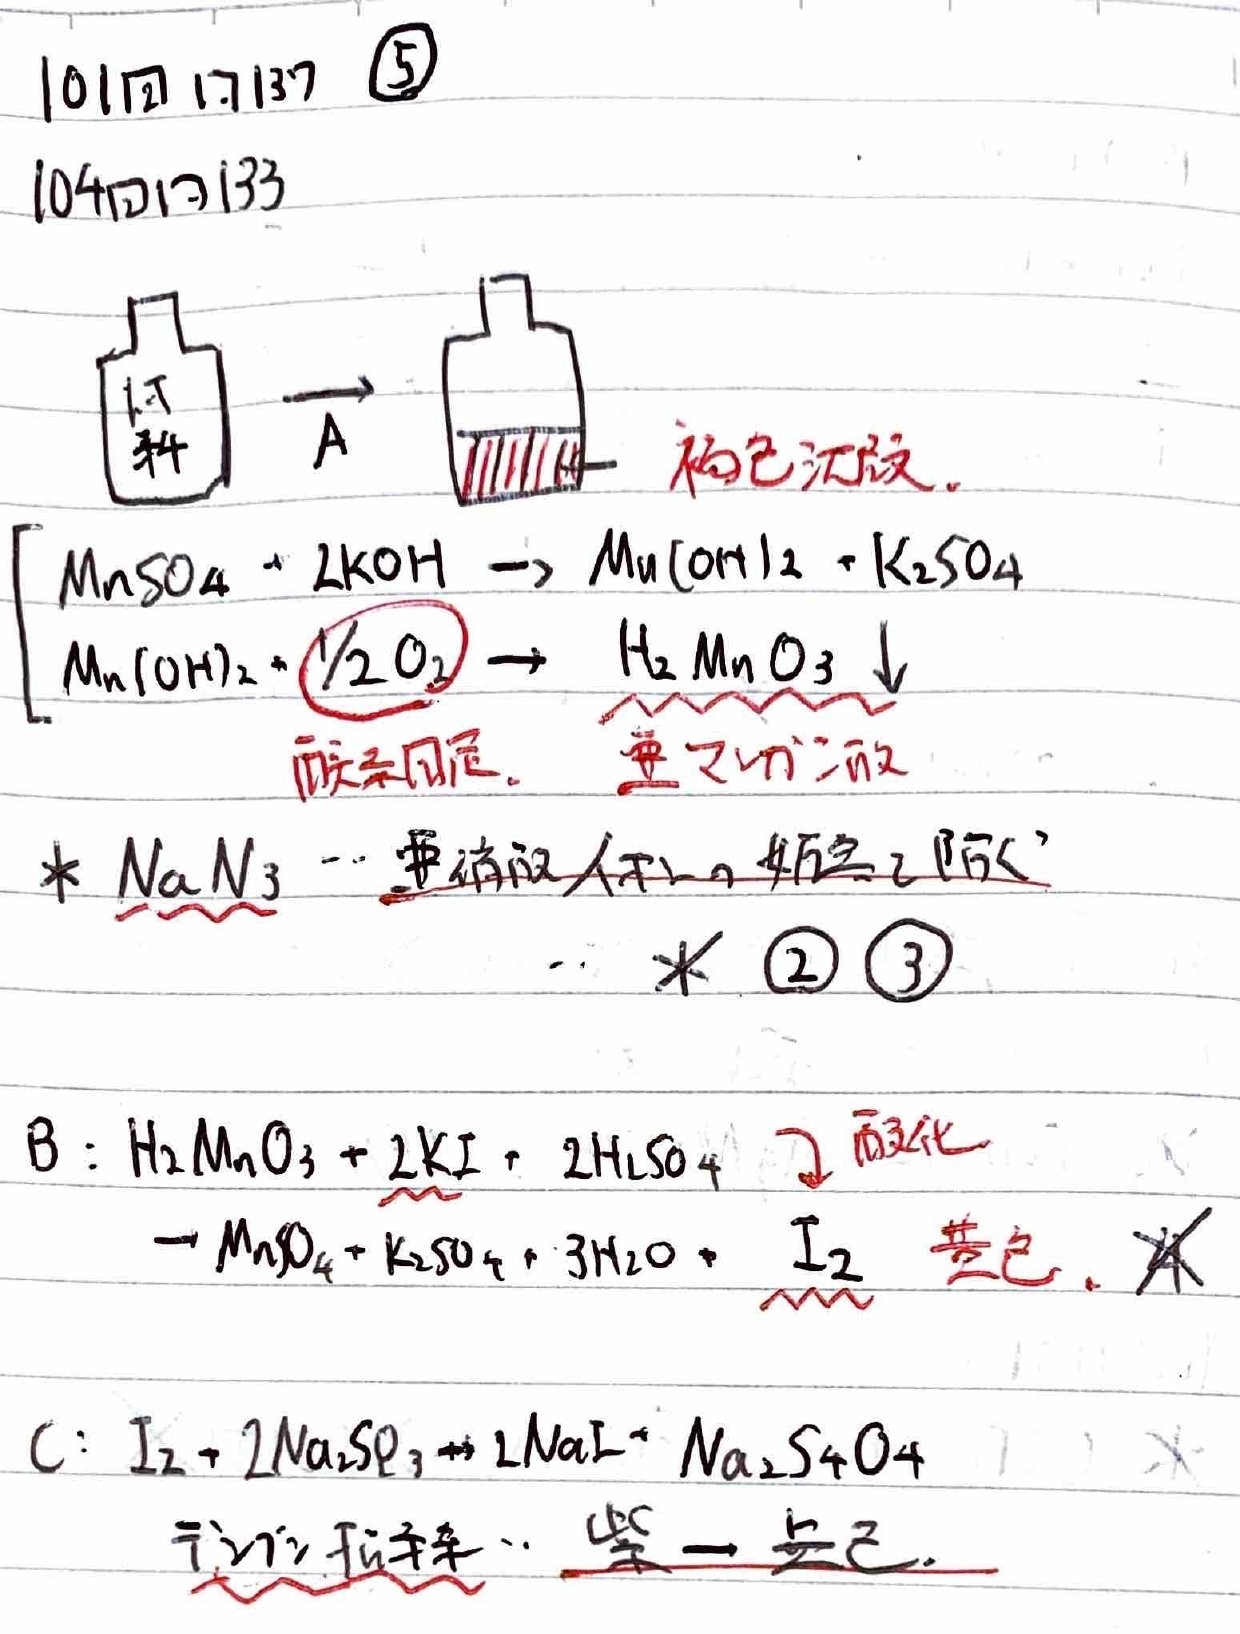 101回 問137 ⑤
104回問133
試料
A
褐色沈殿.
MnSO4 + 2KOH → Mn(OH)2 + K2SO4
Mn(OH)2 + 1/2 O2 → H2MnO3 ↓
酸素固定. 亜マンガン酸
* NaN3 … 亜硝酸イオンの妨害を防ぐ
‥ * ② ③
B : H2MnO3 + 2KI + 2H2SO4 酸化
→ MnSO4 + K2SO4 + 3H2O + I2 黄色.
C: I2 + 2Na2SO3 → 2NaI + Na2S4O4
デンプン指示薬 ‥ 紫 → 無色.